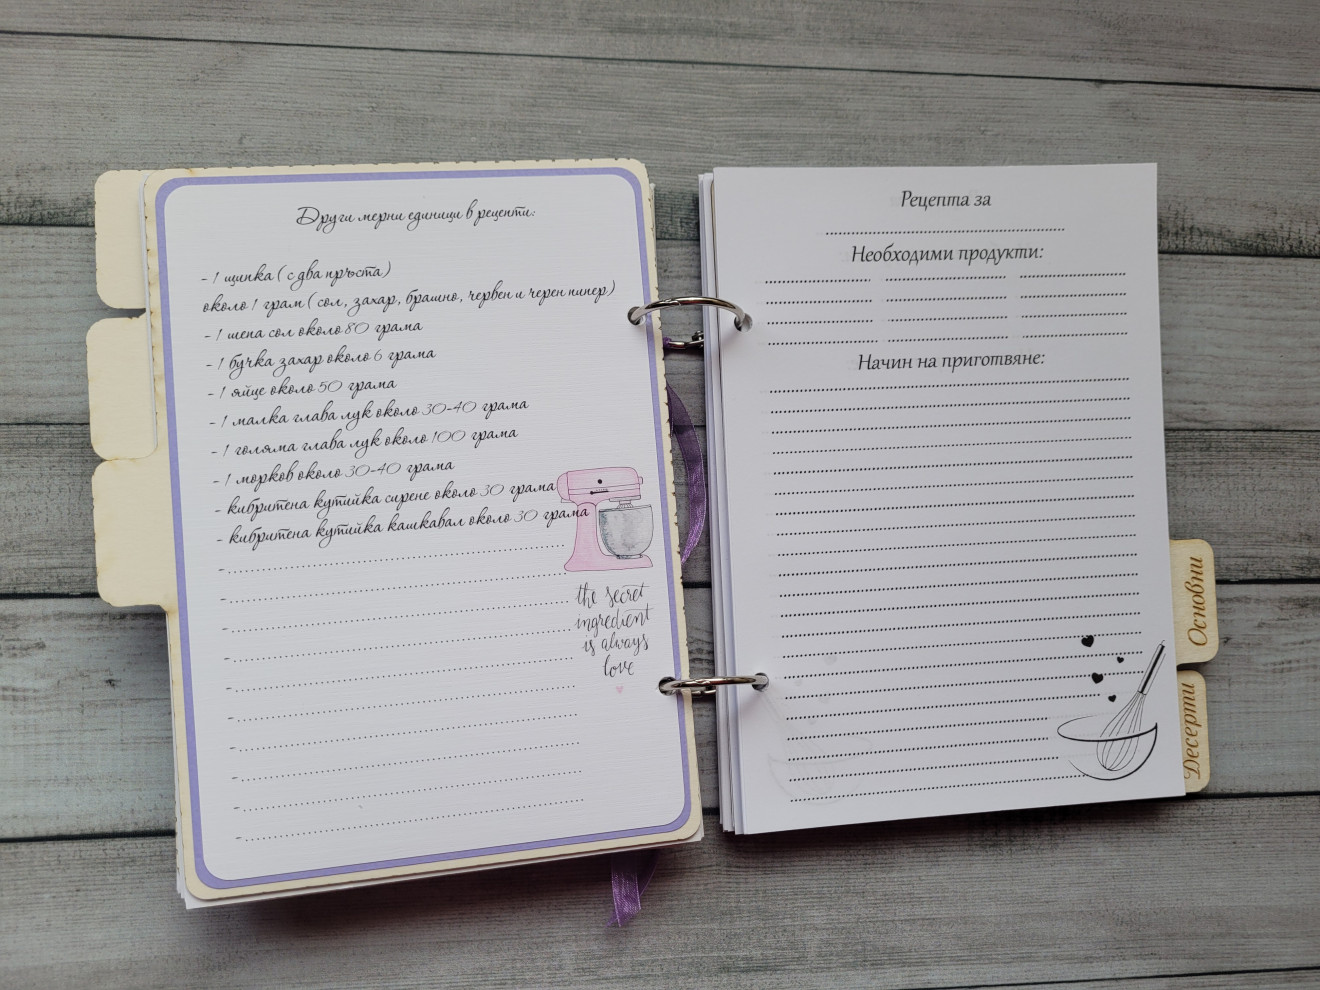 Други мерни единици в рецепти:
- 1 щипка ( с два пръста)
около 1 грам ( сол, захар, брашно, червен и черен пипер)
- 1 шепа сол около 80 грама
- 1 бучка захар около 6 грама
- 1 яйце около 50 грама
- 1 малка глава лук около 30-40 грама
- 1 голяма глава лук около 100 грама
- 1 морков около 30-40 грама
- кибритена кутийка сирене около 30 грама
- кибритена кутийка кашкавал около 30 грама
the secret
ingredient
is always
love
Рецепта за
Необходими продукти:
Начин на приготвяне:
Основни
Десерти